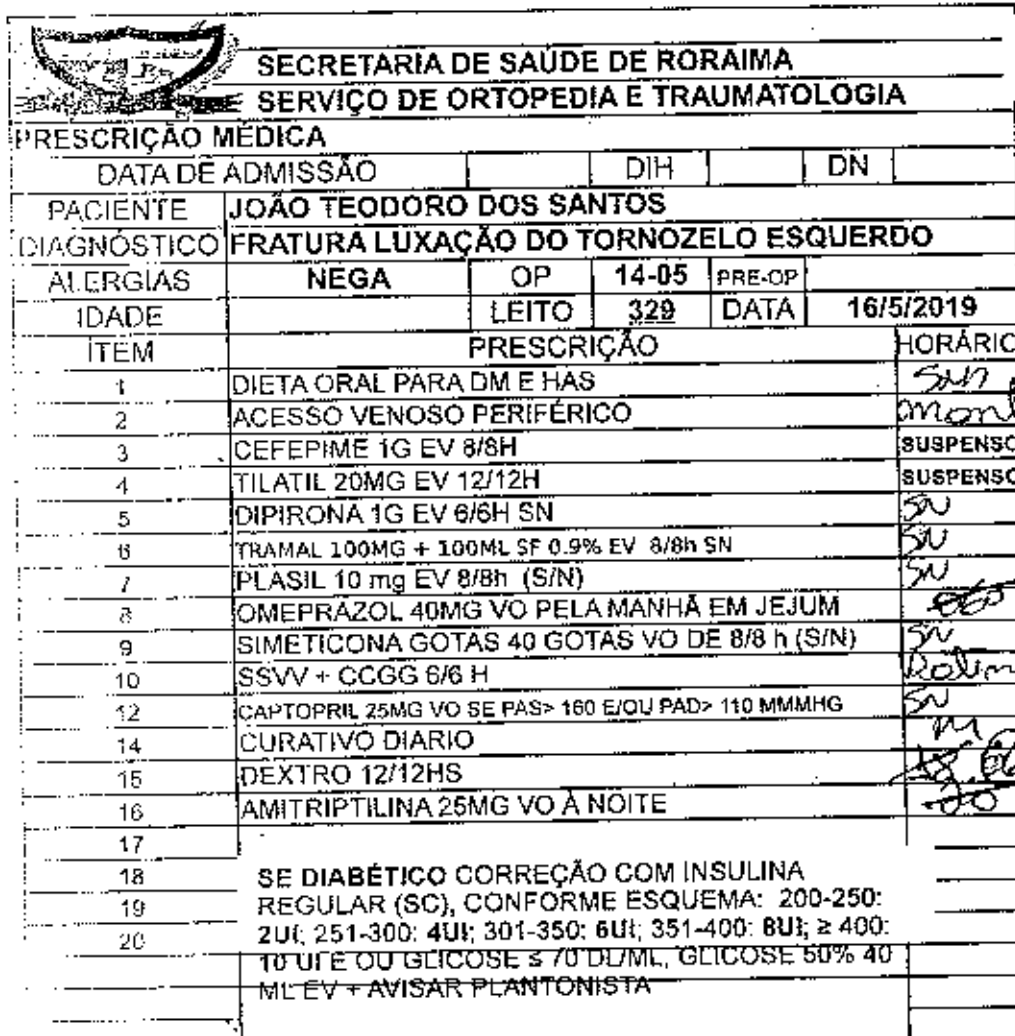 SECRETARIA DE SAÚDE DE RORAIMA
SERVIÇO DE ORTOPEDIA E TRAUMATOLOGIA
PRESCRIÇÃO MÉDICA
DATA DE ADMISSÃO DIH DN
PACIENTE JOÃO TEODORO DOS SANTOS
DIAGNÓSTICO FRATURA LUXAÇÃO DO TORNOZELO ESQUERDO
ALERGIAS NEGA OP 14-05 PRE-OP
IDADE LEITO 329 DATA 16/5/2019
ITEM PRESCRIÇÃO HORÁRIO
1 DIETA ORAL PARA DM E HAS
2 ACESSO VENOSO PERIFÉRICO
3 CEFEPIME 1G EV 8/8H SUSPENSO
4 TILATIL 20MG EV 12/12H SUSPENSO
5 DIPIRONA 1G EV 6/6H SN SN
6 TRAMAL 100MG + 100ML SF 0.9% EV 8/8h SN SN
7 PLASIL 10 mg EV 8/8h (S/N) SN
8 OMEPRAZOL 40MG VO PELA MANHÃ EM JEJUM
9 SIMETICONA GOTAS 40 GOTAS VO DE 8/8 h (S/N) SN
10 SSVV + CCGG 6/6 H
12 CAPTOPRIL 25MG VO SE PAS> 160 E/OU PAD> 110 MMMHG SN
14 CURATIVO DIARIO M
15 DEXTRO 12/12HS
16 AMITRIPTILINA 25MG VO À NOITE
17
18 SE DIABÉTICO CORREÇÃO COM INSULINA
19 REGULAR (SC), CONFORME ESQUEMA: 200-250:
20 2UI; 251-300: 4UI; 301-350: 6UI; 351-400: 8UI; ≥ 400:
10 UI E OU GLICOSE ≤ 70 DL/ML, GLICOSE 50% 40
ML EV + AVISAR PLANTONISTA